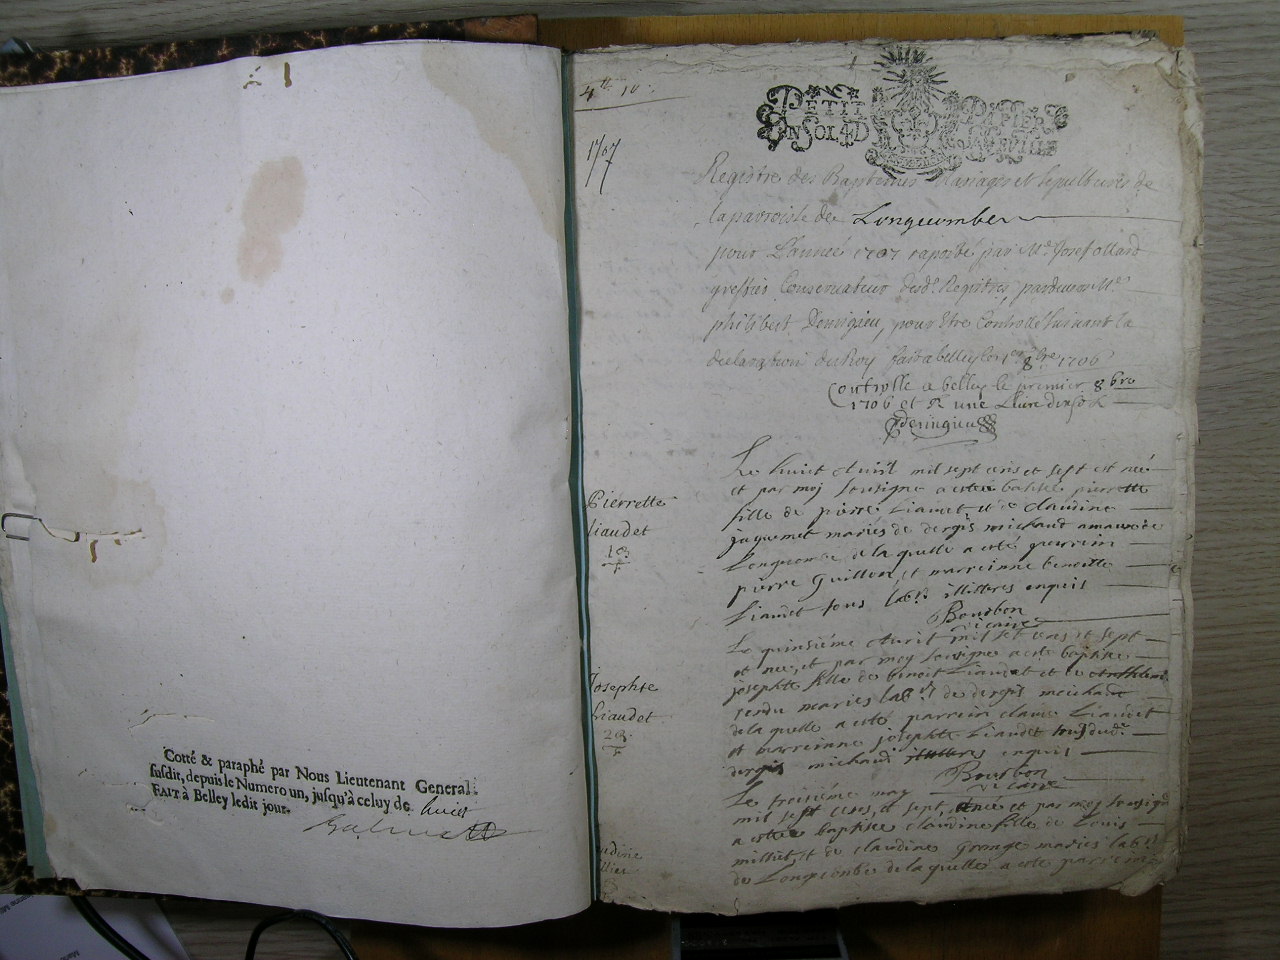 Cotté & paraphé par Nous Lieutenant General
susdit, depuis le Numero un, jusqu'à celuy de huict
FAIT à Belley ledit jour.
4tt 10s
1707
PETIT PAPIER
EN SOL 4D
Registre des Baptesmes Mariages et sepultures de
la parroisse de Longecombe
pour L'année 1707 raporté par Me Josef ollard
greffier Conservateur desd. Registres, pardevant Me
philibert Demigieu, pour Estre Controllé suivant la
declaration du Roy fait a belley le 1er 8bre 1706
Controlle a belley le premier 8bre
1706 et R une Livre dix sols
Demigieu
Pierrette
liaudet
1B
Le huict Avril mil sept cens et sept est née
et par moj sousigne a estée batisée pierrette
fille de pierre Liaudet et de claudine
jaquemet mariés de dergis michaud
Longecombe de la quelle a esté parrein
pierre Guillon, et marreinne benoitte
Liaudet tous lab.rs illitteres enquis
Bourbon
vicaire
Josephte
Liaudet
2B
Le quinsiéme Avril mil set cens et sept
et née, et par moy sousigne a este baptisee
josephte fille de benoit Liaudet et de
rendu mariés lab.rs de dergis michaud
de la quelle a esté parrein claude Liaudet
et marreinne josephte Liaudet tous dud.
dergis michaud illitteres enquis
Bourbon
vicaire
Le troisiéme may
mil sept cens, et sept, est née et par moy sousigné
a estee baptisee claudine fille de Louis
milliet, et de claudine Grange mariés lab.rs
de Longecombe de la quelle a este parrein